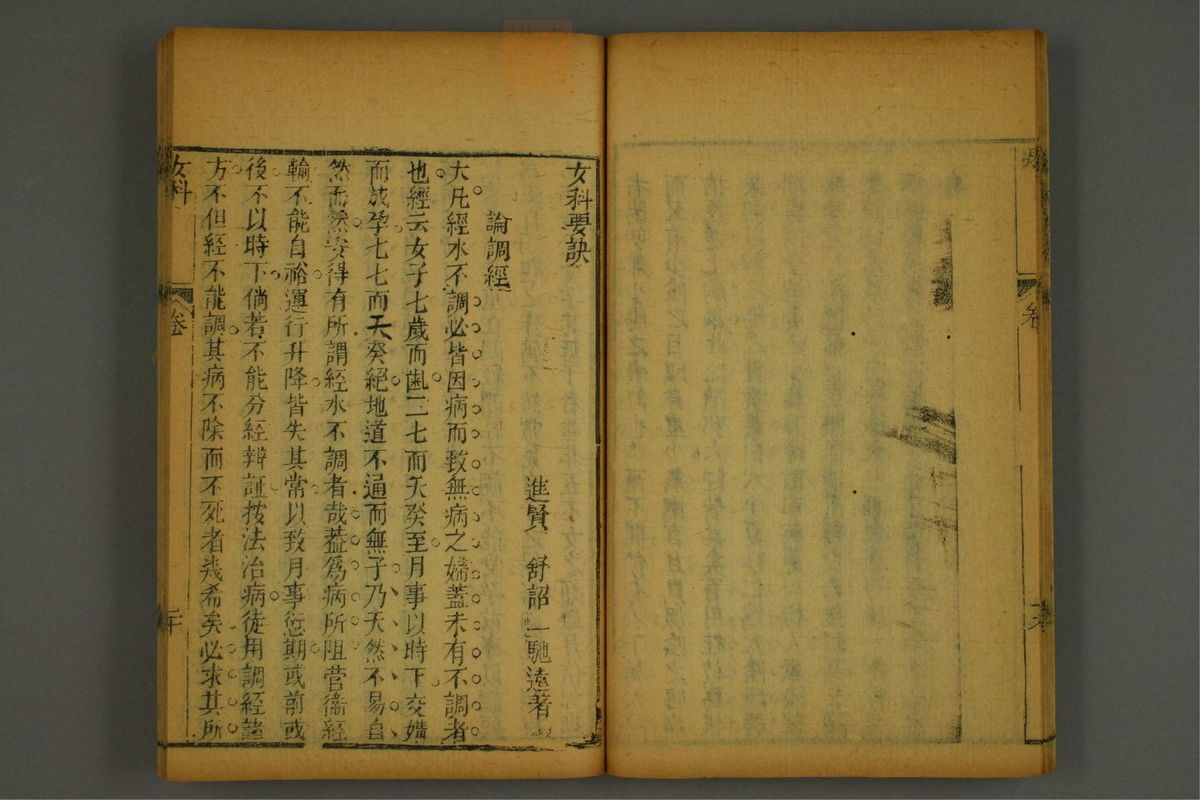 女科要訣
進賢 舒詔 馳遠著
論調經
大凡經水不調必皆因病而致無病之婦蓋未有不調者
也經云女子七歲而齒二七而天癸至月事以時下交媾
而成孕七七而天癸絕地道不通而無子乃天然不易自
然而然安得有所謂經水不調者哉葢爲病所阻營衛經
輸不能自裕運行升降皆失其常以致月事愆期或前或
後不以時下倘若不能分經辨証按法治病徒用調經諸
方不但經不能調其病不除而不死者幾希矣必求其所
女科
卷
二十